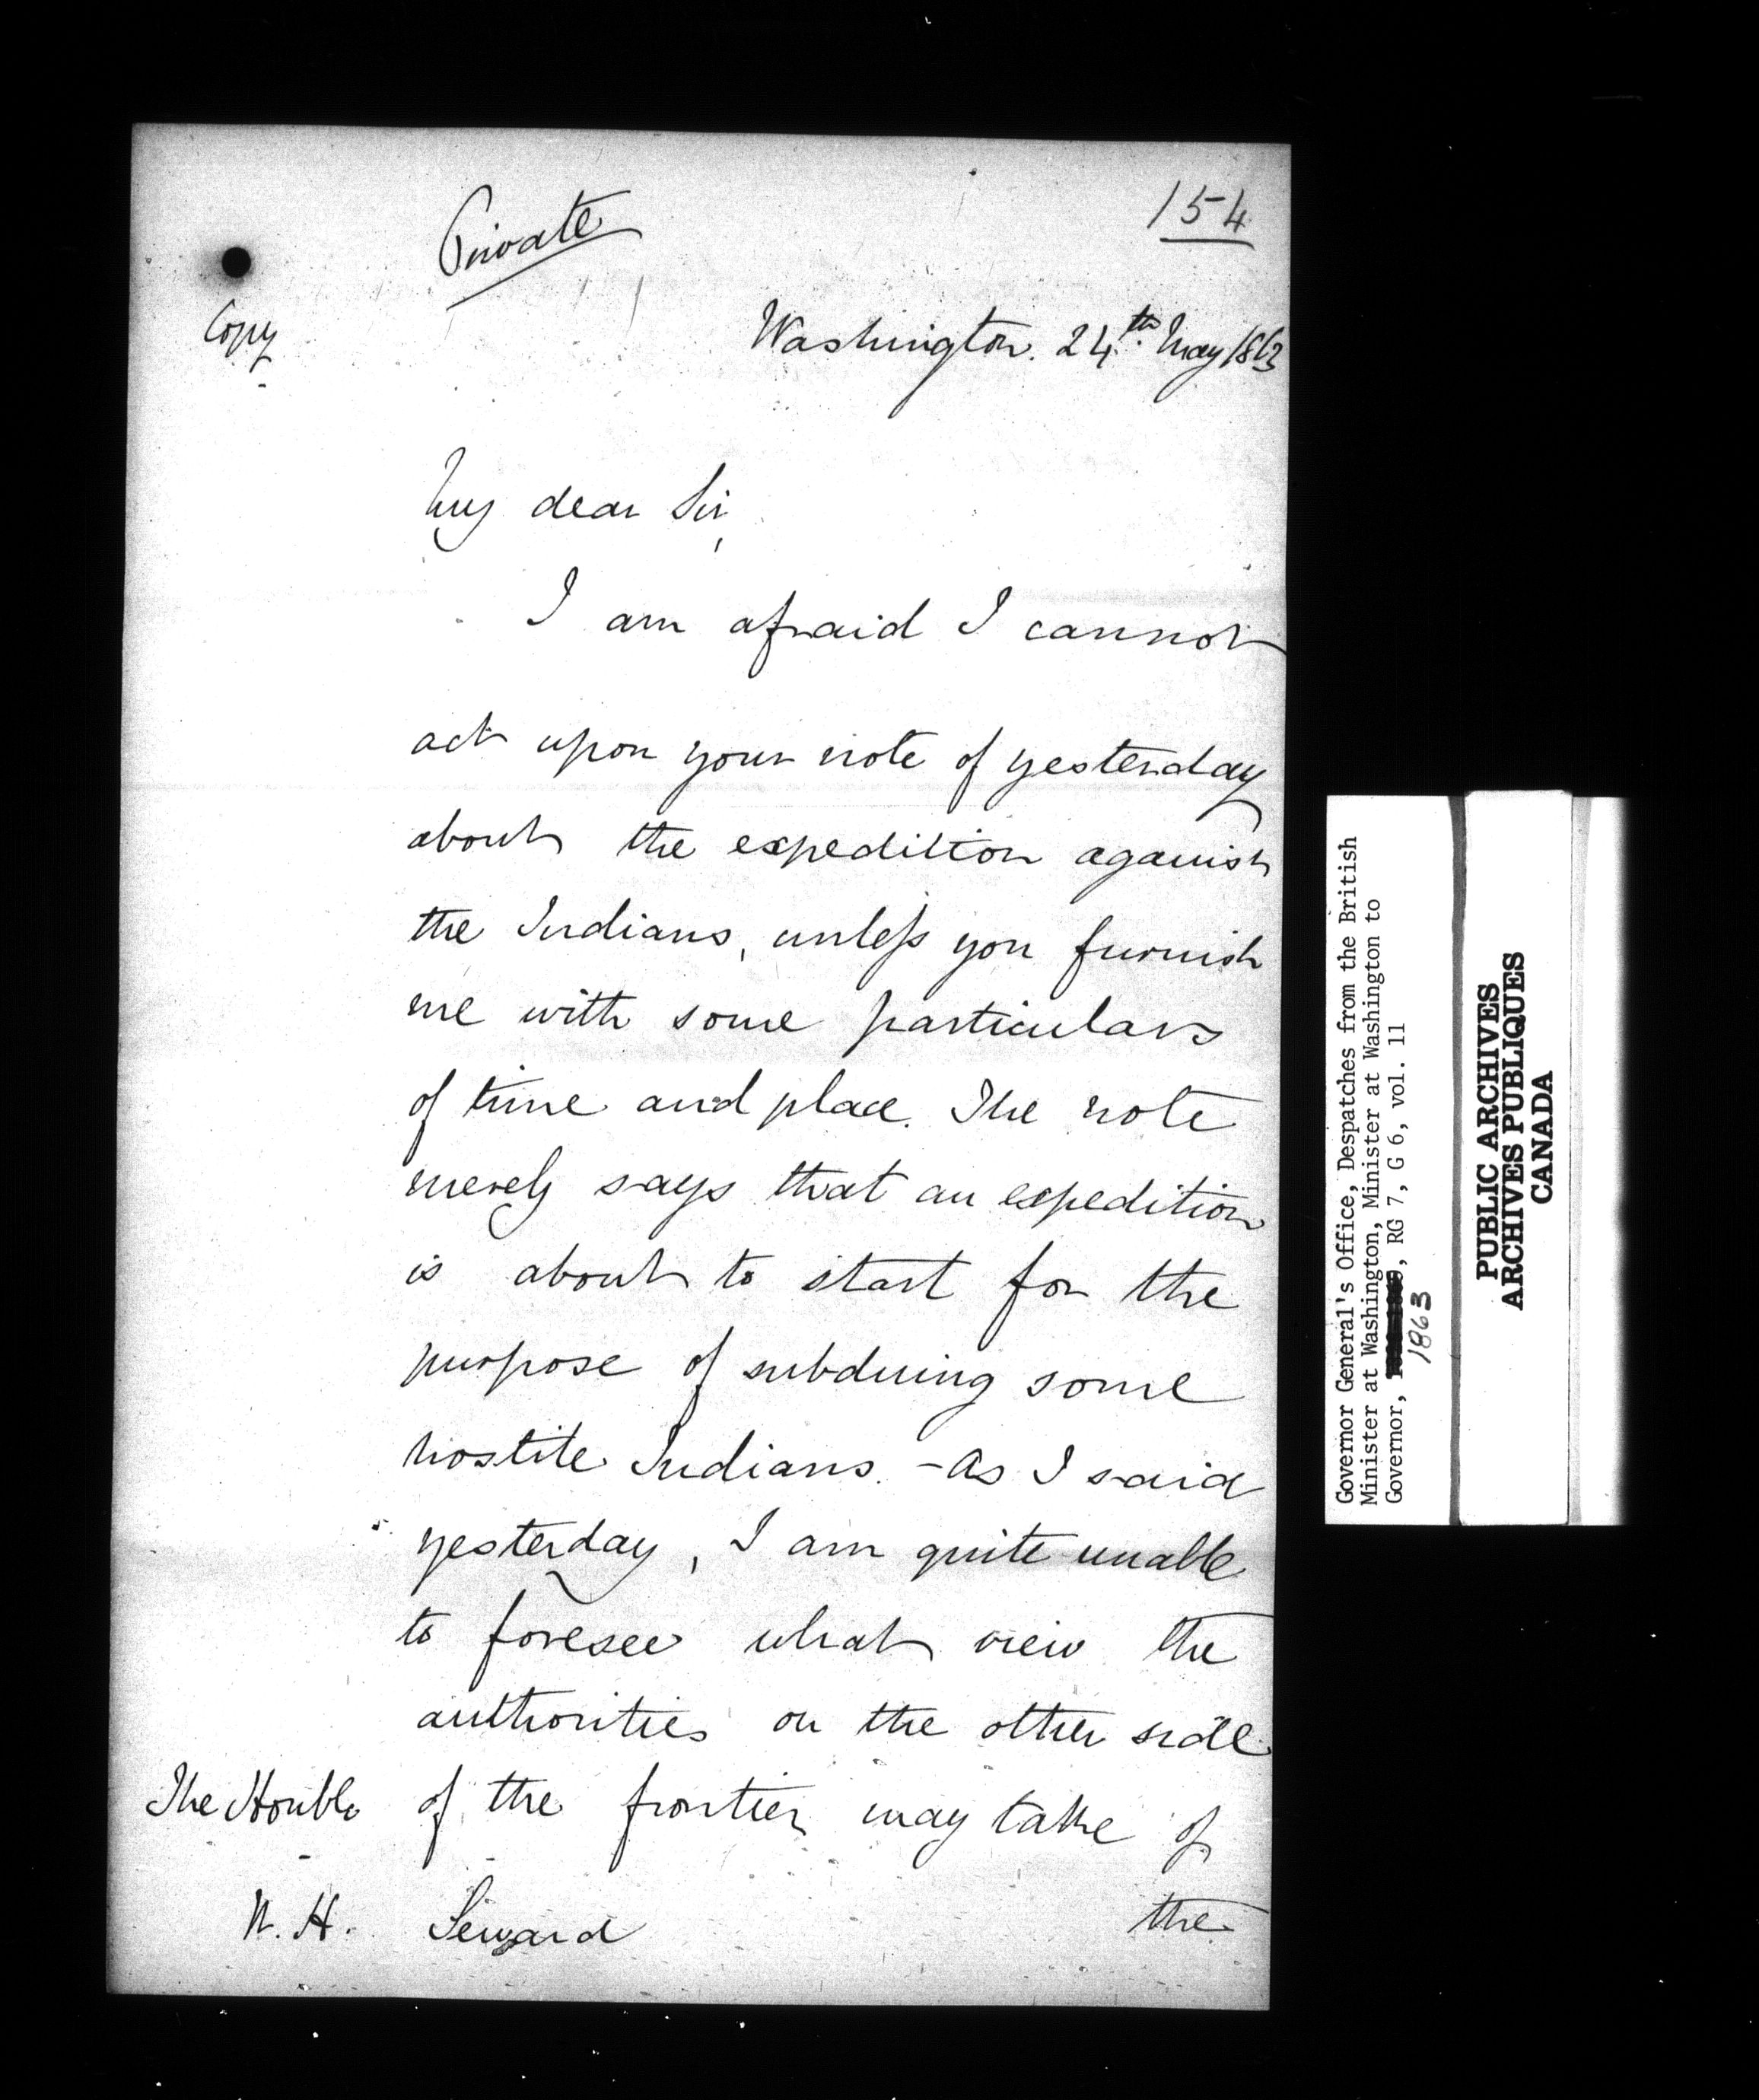 Private
154
Copy
Washington. 24th May 1863
My dear Sir,
I am afraid I cannot
act upon your note of yesterday
about the expedition against
the Indians, unless you furnish
me with some particulars
of time and place. The note
merely says that an expedition
is about to start for the
purpose of subduing some
hostile Indians. - As I said
yesterday, I am quite unable
to foresee what view the
authorities on the other side
of the frontier may take of
the
The Honble
W. H. Seward
Governor General's Office, Despatches from the British
Minister at Washington, Minister at Washington to
Governor, , RG 7, G 6, vol. 11
1863
PUBLIC ARCHIVES
ARCHIVES PUBLIQUES
CANADA